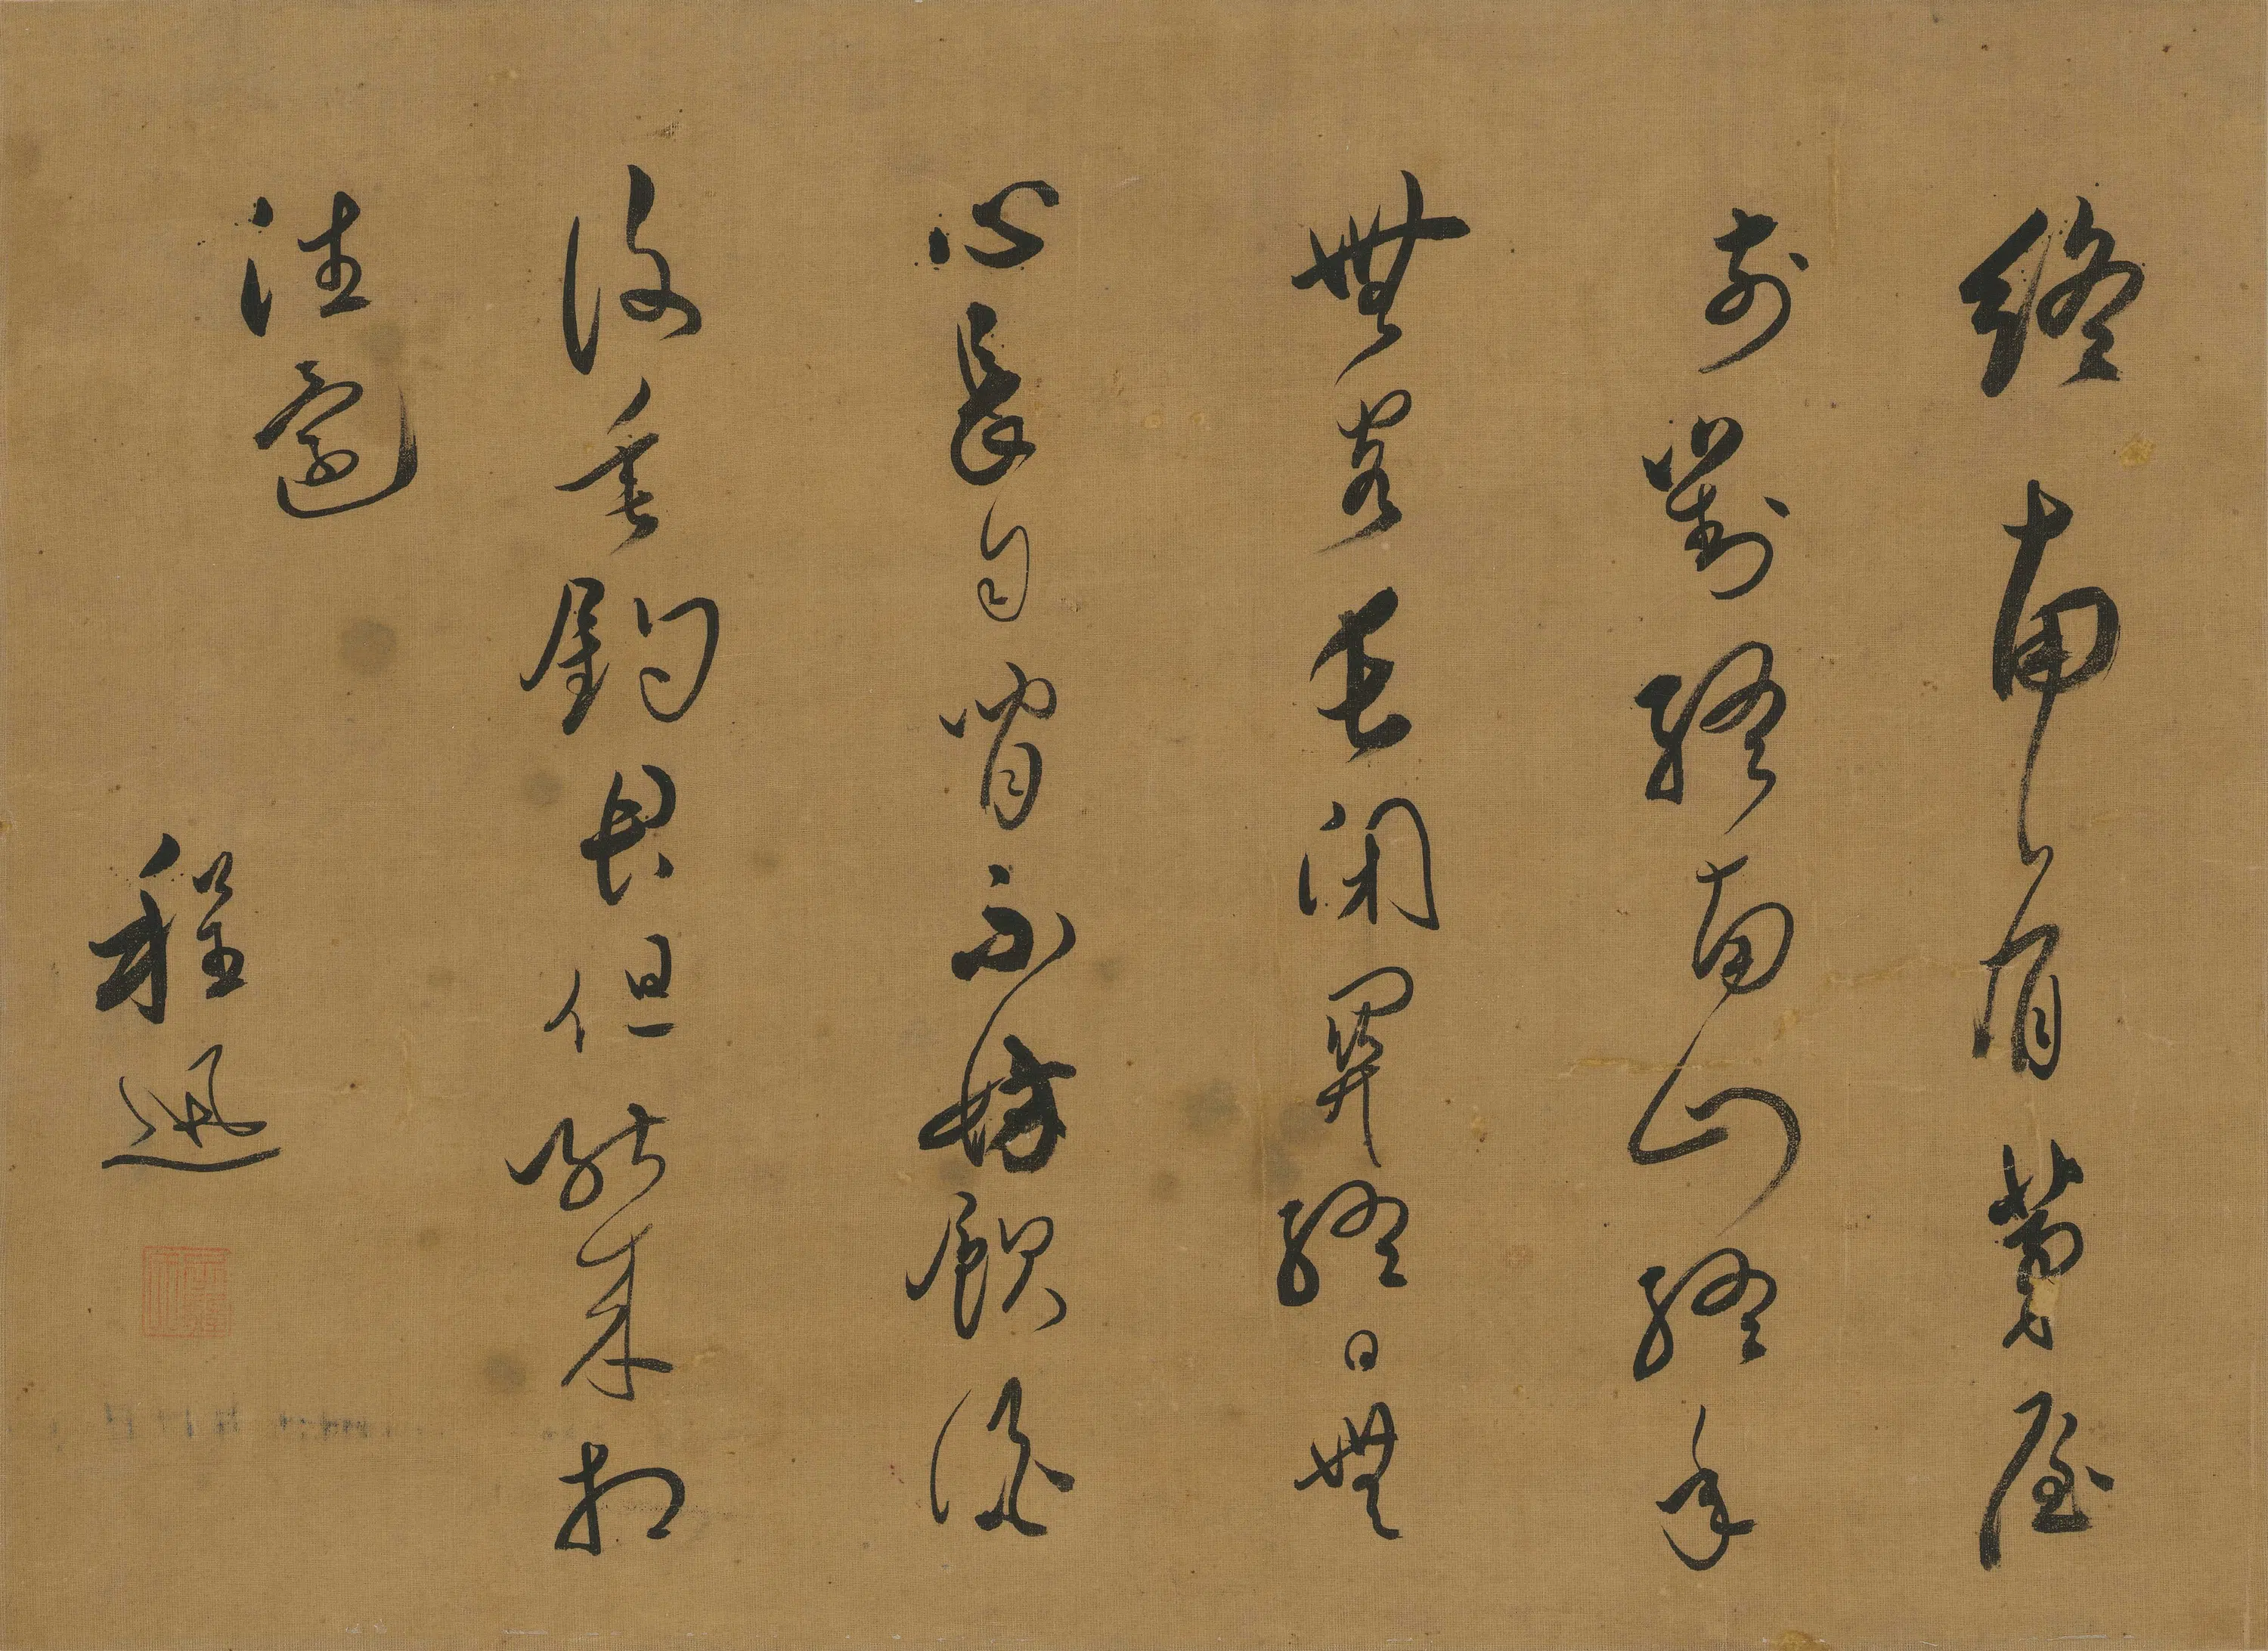 終南有茅屋
前對終南山終年
無客長閉關終日無
心長自閒不妨飲酒
復垂釣君但能來相
往還
程迅